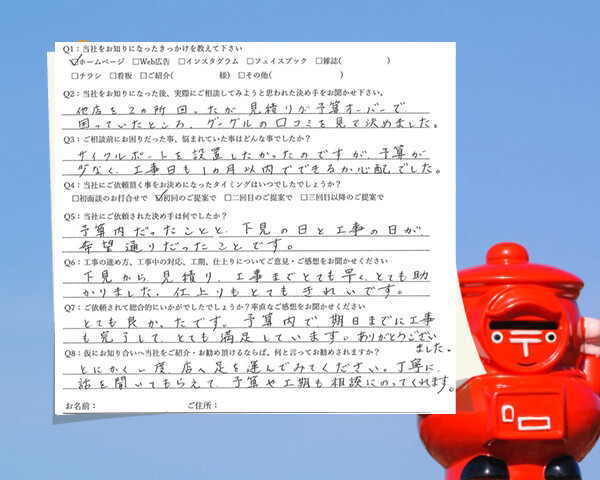 Q1：当社をお知りになったきっかけを教えて下さい
☑ホームページ □Web広告 □インスタグラム □フェイスブック □雑誌（　　　　　）
□チラシ □看板 □ご紹介（　　　　　様） □その他（　　　　　　　）
Q2：当社をお知りになった後、実際にご相談してみようと思われた決め手をお聞かせ下さい。
他店を2カ所回ったが見積りが予算オーバーで
困っていたところ、グーグルの口コミを見て決めました。
Q3：ご相談前にお困りだった事、悩まれていた事はどんな事でしたか？
サイクルポートを設置したかったのですが、予算が
少なく、工事日も1カ月以内でできるか心配でした。
Q4：当社にご依頼頂く事をお決めになったタイミングはいつでしたでしょうか？
□初面談のお打合せで ☑初回のご提案で □二回目のご提案で □三回目以降のご提案で
Q5：当社にご依頼された決め手は何でしたか？
予算内だったことと、下見の日と工事の日が、
希望通りだったことです。
Q6：工事の進め方、工事中の対応、工期、仕上りについてご意見・ご感想をお聞かせください
下見から、見積り、工事までとても早く、とても助
かりました。仕上りもとてもきれいです。
Q7：ご依頼されて総合的にいかがでしたでしょうか？率直なご感想をお聞かせください
とても良かったです。予算内で期日までに工事
も完了して、とても満足しています。ありがとうござい
ました。
Q8：仮にお知り合いへ当社をご紹介・お勧め頂けるならば、何と言ってお勧めされますか？
とにかく一度、店へ足を運んでみてください。丁寧に、
話を聞いてもらえて、予算や工期も相談にのってくれます。
お名前：　　　　　　　ご住所：